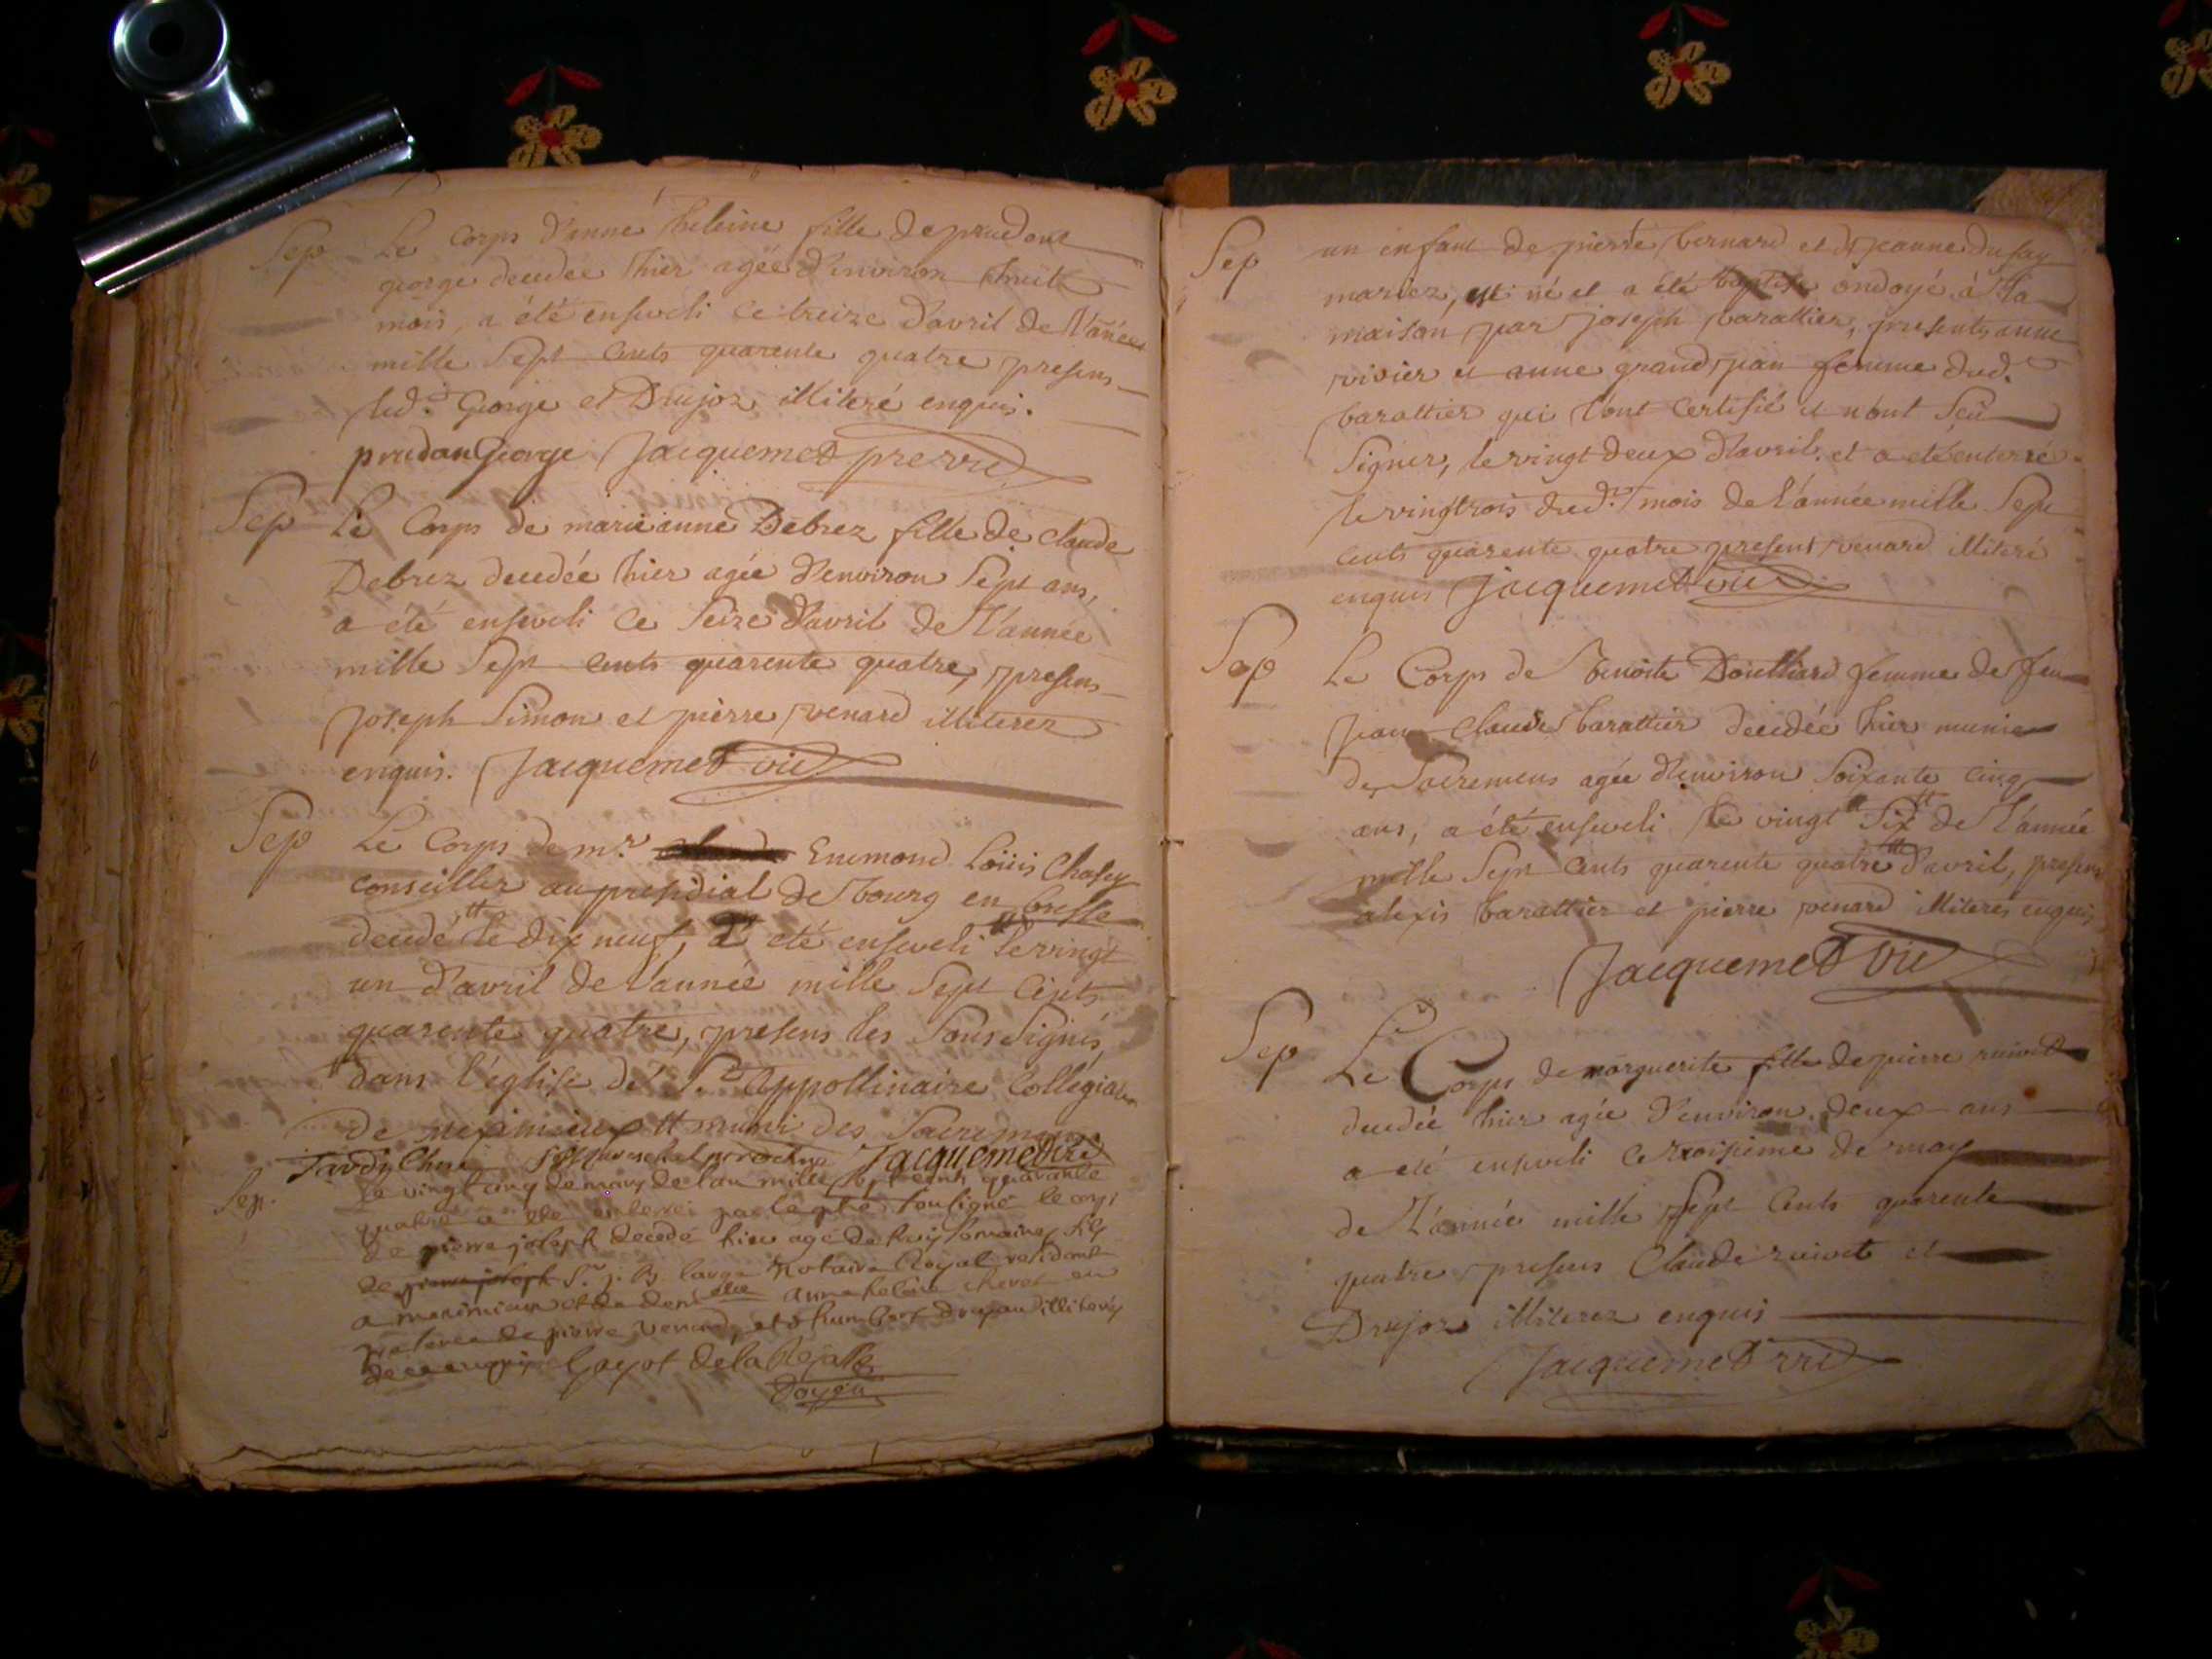 Sep Le Corps d'anne heleine fille de prudent
george decedée hier agée d'environ huit
mois, a été enseveli ce treize d'avril de l'année
mille Sept cents quarente quatre presens
led. George et Drujoz illiteré enquis.
prudan George Jacquemet
Sep Le Corps de marieanne Debrez fille de claude
Debrez decedée hier agée d'environ Sept ans,
a été enseveli ce Seize d'avril de l'année
mille Sept cents quarente quatre, presens
joseph Simon et pierre venard illiterez
enquis. Jacquemet vic
Sep Le Corps de mr. Enemond Loüis Chasey
Conseiller au presidial de bourg en bresse
decedé le dix neuf, a eté enseveli le vingt
un d'avril de l'année mille Sept cents
quarente quatre, presens les Sous Signés
dans l'église de St. Appollinaire Collegiale
de meximieux tt muni des Sacremens
Jacquemet
Sep. Le vingt cinq de mars de l'an mille sept cents quarante
quatre a été enterré par le ptre Sousigné le corps
de pierre joseph decedé hier agé de huit Semaines fils
de pierre joseph Sr. j. B. Notaire Royal residant
a meximieux et de anne helene en
presence de pierre venard, et humbert illiterés
de ce enquis Gayot de la
Doyen
Sep un enfant de pierre bernard et de jeanne dufay
mariez, est né et a été baptisé ondoyé à la
maison par joseph barattier, presents anne
vivier et anne grand jean femme dud.
barattier qui l'ont Certifié et n'ont Sçû
Signer, le vingt deux d'avril, et a été enterré
le vingtrois dud. mois de l'année mille Sept
cents quarente quatre present venard illiteré
enquis Jacquemet vic
Sep Le Corps de benoite Doulhard femme de feu
jean Claude barattier decedée hier munie
de Sacremens agée d'environ Soixante cinq
ans, a été enseveli le vingt Six de l'année
mille Sept cents quarente quatre d'avril, presens
alexis barattier et pierre venard illiteres enquis
Jacquemet vic
Sep Le Corps de marguerite fille de pierre ruivet
decedée hier agée d'environ deux ans
a eté enseveli ce troisième de may
de l'année mille Sept cents quarente
quatre presens Claude ruivet et
Drujoz illiterez enquis
Jacquemet